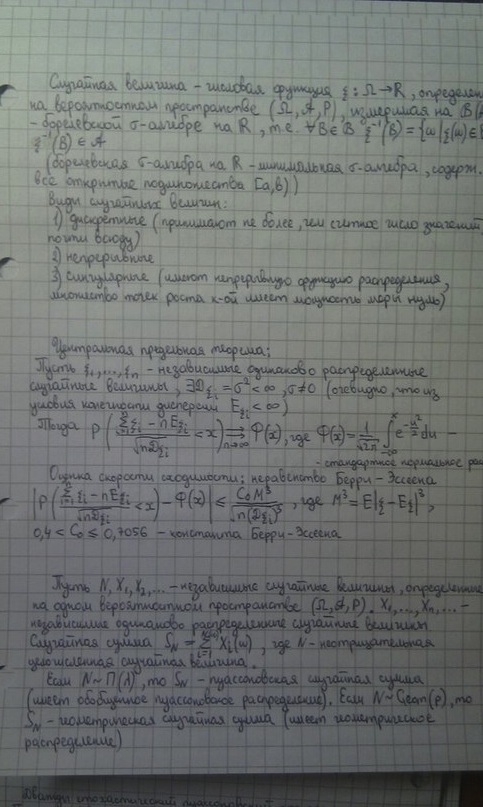 Случайная величина - числовая функция ξ: Ω→R, определен
на вероятностном пространстве (Ω, A, P), измеримая на B(
- борелевской σ-алгебре на R, т.е. ∀B∈B ξ⁻¹(B) = {ω|ξ(ω)∈B
ξ⁻¹(B) ∈ A
(борелевская σ-алгебра на R - минимальная σ-алгебра, содерж.
все открытые подмножества [a,b))
Виды случайных величин:
1) дискретные (принимают не более, чем счетное число значений
почти всюду)
2) непрерывные
3) сингулярные (имеют непрерывную функцию распределения,
множество точек роста к-ой имеет мощность меры нуль)
Центральная предельная теорема:
Пусть ξ₁,...,ξₙ - независимые одинаково распределенные
случайные величины, ∃Dξᵢ = σ² < ∞, σ≠0 (очевидно, что из
условия конечности дисперсии Eξᵢ < ∞)
Тогда P( (∑ᵢ₌₁ⁿ ξᵢ - nEξᵢ)/√(nDξᵢ) < x ) ⇉ₙ→∞ Φ(x), где Φ(x) = 1/√(2π) ∫₋∞ˣ e^(-u²/2) du -
- стандартное нормальное рас
Оценка скорости сходимости; неравенство Берри-Эссеена
|P( (∑ᵢ₌₁ⁿ ξᵢ - nEξᵢ)/√(nDξᵢ) < x ) - Φ(x)| ≤ C₀M³/(√n(Dξᵢ)³), где M³ = E|ξ - Eξᵢ|³,
0,4 < C₀ ≤ 0,7056 - константа Берри-Эссеена
Пусть N, X₁, X₂, ... - независимые случайные величины, определенные
на одном вероятностном пространстве (Ω, A, P). X₁,..., Xₙ,... -
независимые одинаково распределенные случайные величины
Случайная сумма S_N = ∑ᵢ₌₁ᴺ⁽ω⁾ Xᵢ(ω), где N - неотрицательная
целочисленная случайная величина.
Если N ~ Π(λ), то S_N - пуассоновская случайная сумма
(имеет обобщенное пуассоновское распределение). Если N ~ Geom(p), то
S_N - геометрическая случайная сумма (имеет геометрическое
распределение)